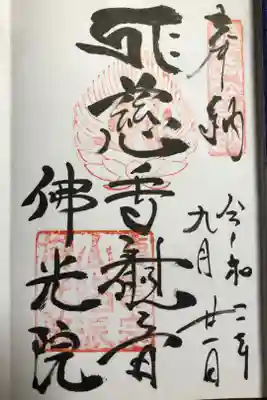 奉納
慈香觀音
令和二年
九月
廿一日
佛光院